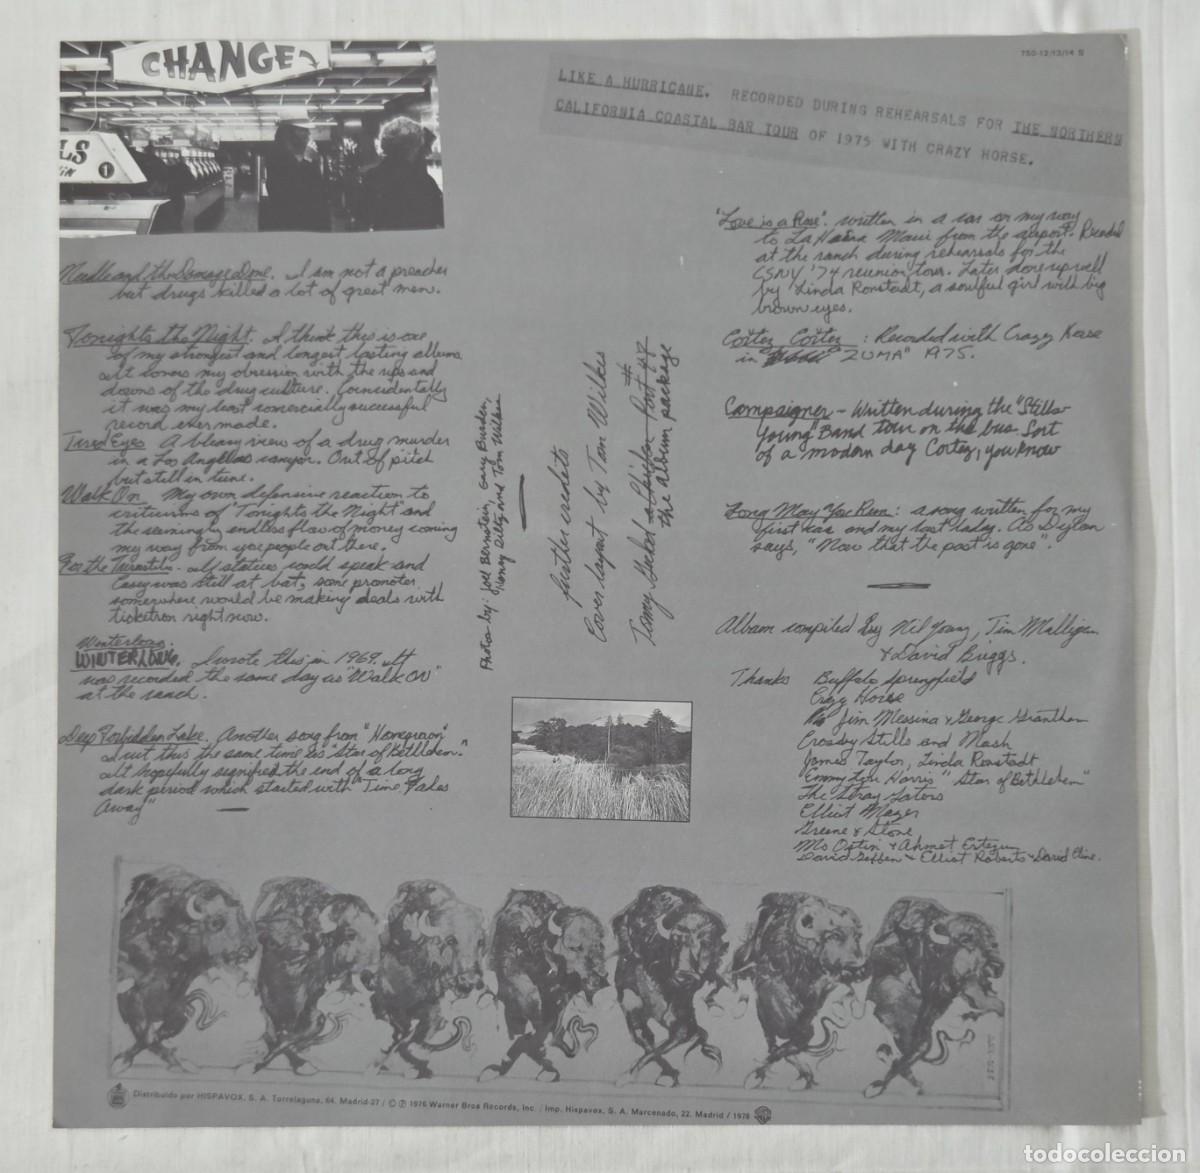 CHANGE
LS
1
750-12/13/14 S
LIKE A HURRICANE. RECORDED DURING REHEARSALS FOR THE NORTHERN
CALIFORNIA COASTAL BAR TOUR OF 1975 WITH CRAZY HORSE.
Needle and the Damage Done. I am not a preacher
but drugs killed a lot of great men.
Tonights the Night. I think this is one
of my strongest and longest lasting albums
It covers my obsession with the ups and
downs of the drug culture. Coincidentally
it was my least comercially successful
record ever made.
Tired Eyes A bleary view of a drug murder
in a Los Angeles canyon. Out of pitch
but still in tune.
Walk On My own defensive reaction to
criticisms of "Tonights the Night" and
the seemingly endless flow of money coming
my way from you people out there.
For the Turnstiles. If statues could speak and
Casey was still at bat, some promoter
somewhere would be making deals with
ticketron right now.
Winterlong.
WINTERLONG. I wrote this in 1969. It
was recorded the same day as "Walk ON"
at the ranch.
Deep Forbidden Lake. Another song from "Homegrown"
I cut this the same time as "Star of Bethlehem."
It hopefully signified the end of a long
dark period which started with "Time Fades
Away"
Photos by: Joel Bernstein, Gary Burden,
Henry Diltz and Tom Wilkes
further credits
Cover layout by Tom Wilkes
the album package
"Love is a Rose". written in a car on my way
to LaHaina Maui from the airport. Recorded
at the ranch during rehearsals for the
CSNY '74 reunion tour. Later done up well
by Linda Ronstadt, a soulful girl with big
brown eyes.
Cortez Cortez : Recorded with Crazy Horse
in ZUMA" 1975.
Campaigner - Written during the "Stills-
Young" Band tour on the bus. Sort
of a modern day Cortez, you know
Long May You Run : a song written for my
first car and my last lady. As Dylan
says, "Now that the past is gone".
Album compiled by Neil Young, Tim Mulligan
& David Briggs.
Thanks Buffalo Springfield
Crazy Horse
Jim Messina & George Grantham
Crosby Stills and Nash
James Taylor, Linda Ronstadt
Emmy Lou Harris "Star of Bethlehem"
The Stray Gators
Elliot Mazer
Greene & Stone
Mo Ostin & Ahmet Ertegun
David Geffen & Elliot Roberts & David Cline.
Distribuido por HISPAVOX, S. A. Torrelaguna, 64. Madrid-27 / © ℗ 1976 Warner Bros Records, Inc. / Imp. Hispavox, S. A. Marcenado, 22. Madrid / 1978
todocoleccion